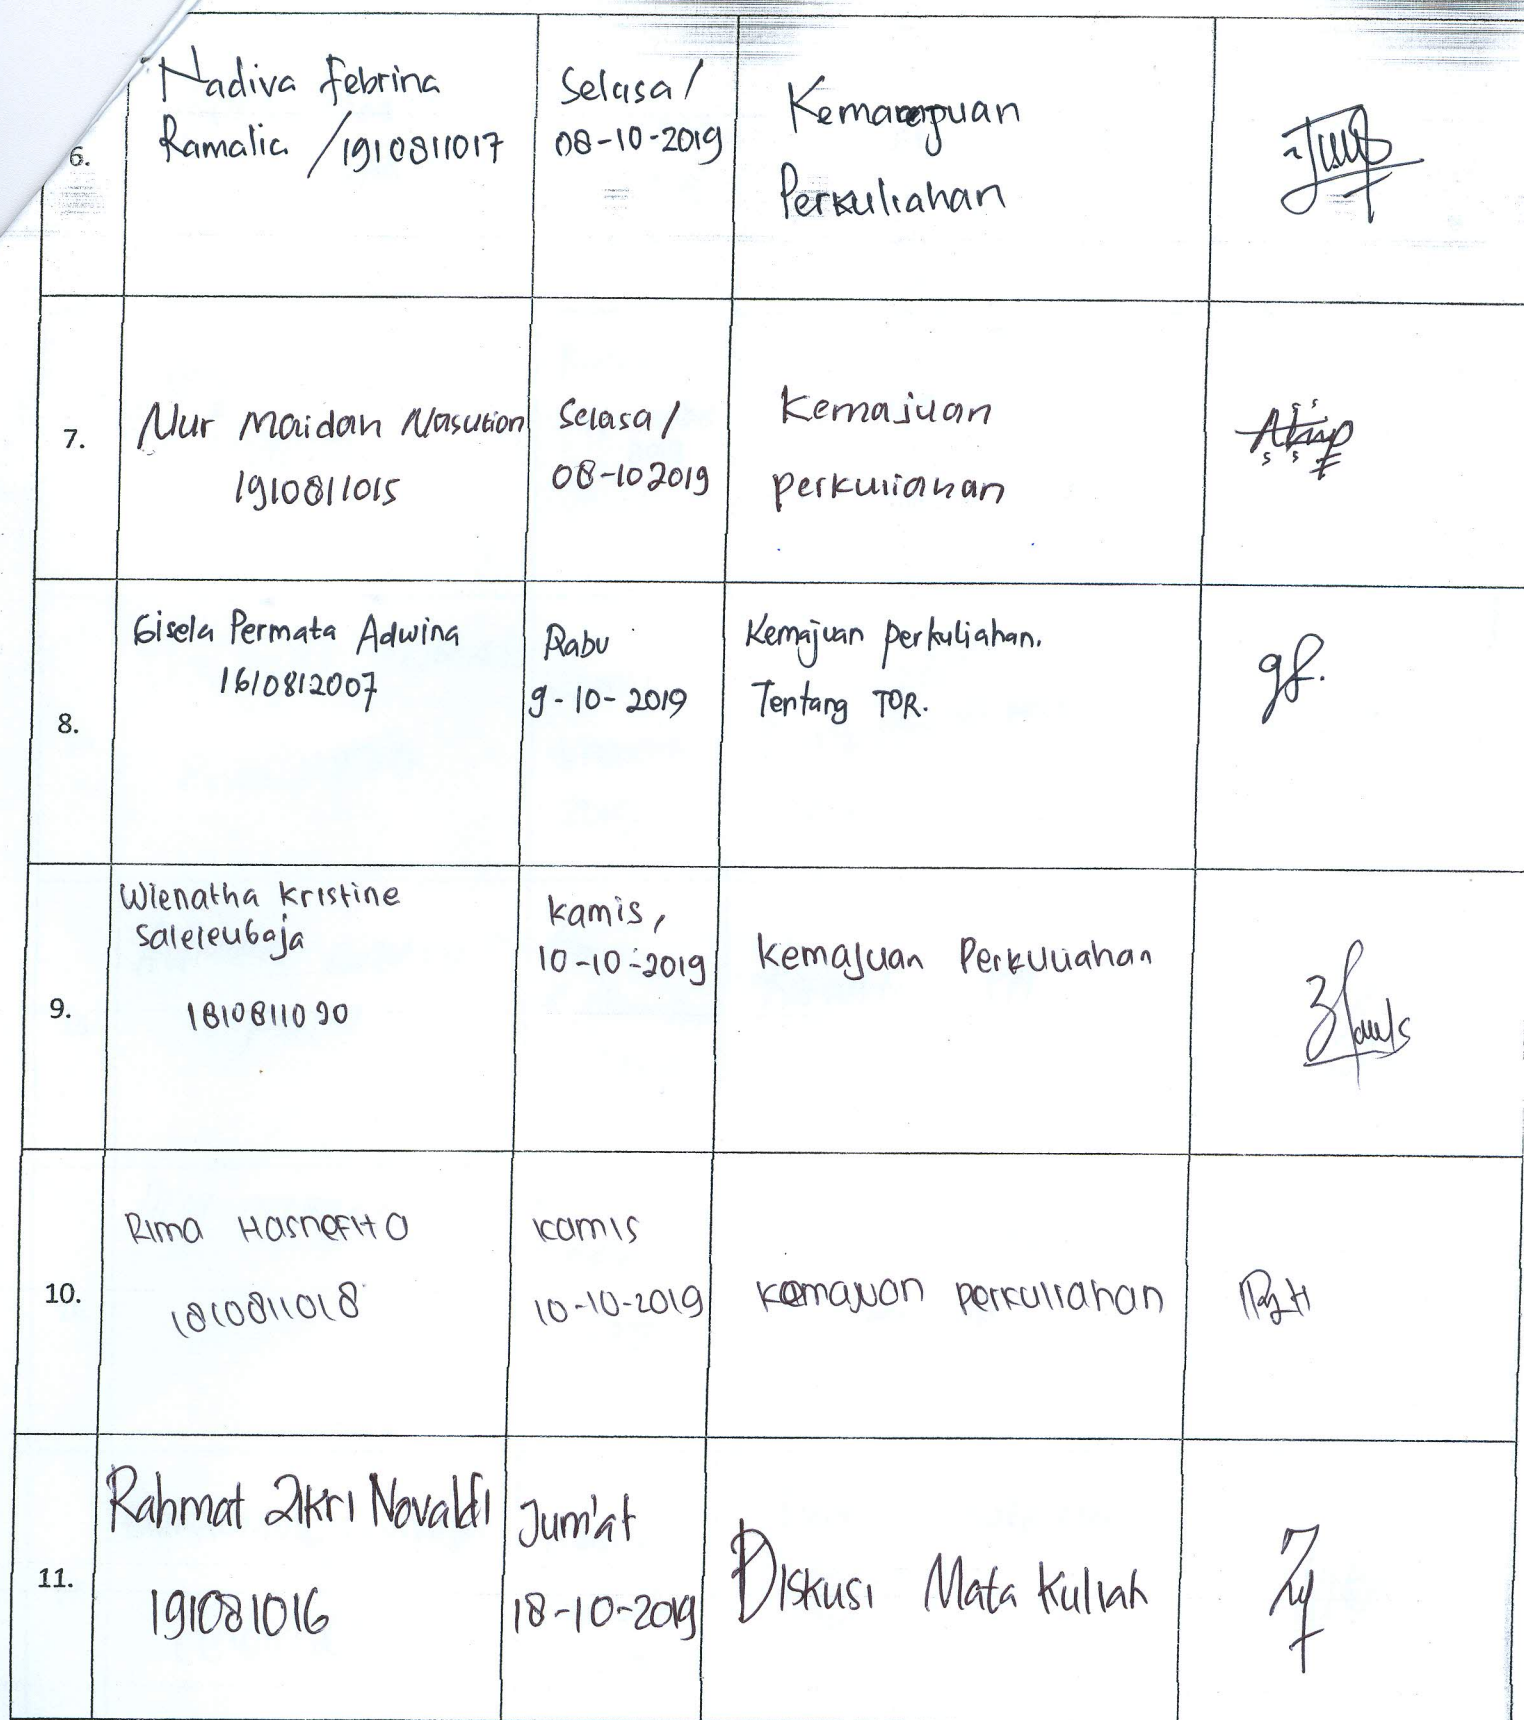 6.
Nadiva Febrina
Ramalia / 1910811017
Selasa /
08-10-2019
Perkuliahan
7.
Nur Maidan Nasution
1910811015
Selasa /
08-10 2019
Kemajuan
perkuliahan
8.
Gisela Permata Adwina
1610812007
Rabu
9-10-2019
Kemajuan perkuliahan.
Tentang TOR.
9.
Wienatha Kristine
Saleleubaja
1810811090
Kamis,
10-10-2019
Kemajuan Perkuliahan
10.
Rima Hasnefita
1810811018
Kamis
10-10-2019
Kemajuan perkuliahan
11.
Rahmat Zikri Novaldi
191081016
Jum'at
18-10-2019
Diskusi Mata Kuliah